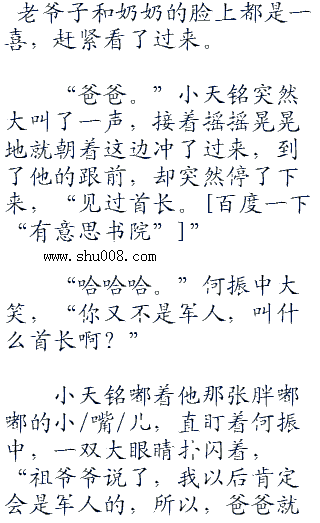 老爷子和奶奶的脸上都是一
喜，赶紧看了过来。
“爸爸。”小天铭突然
大叫了一声，接着摇摇晃晃
地就朝着这边冲了过来，到
了他的跟前，却突然停了下
来，“见过首长。[百度一下
“有意思书院”]”
www.shu008.com
“哈哈哈。”何振中大
笑，“你又不是军人，叫什
么首长啊？”
小天铭嘟着他那张胖嘟
嘟的小/嘴/儿，直盯着何振
中，一双大眼睛扑闪着，
“祖爷爷说了，我以后肯定
会是军人的，所以，爸爸就